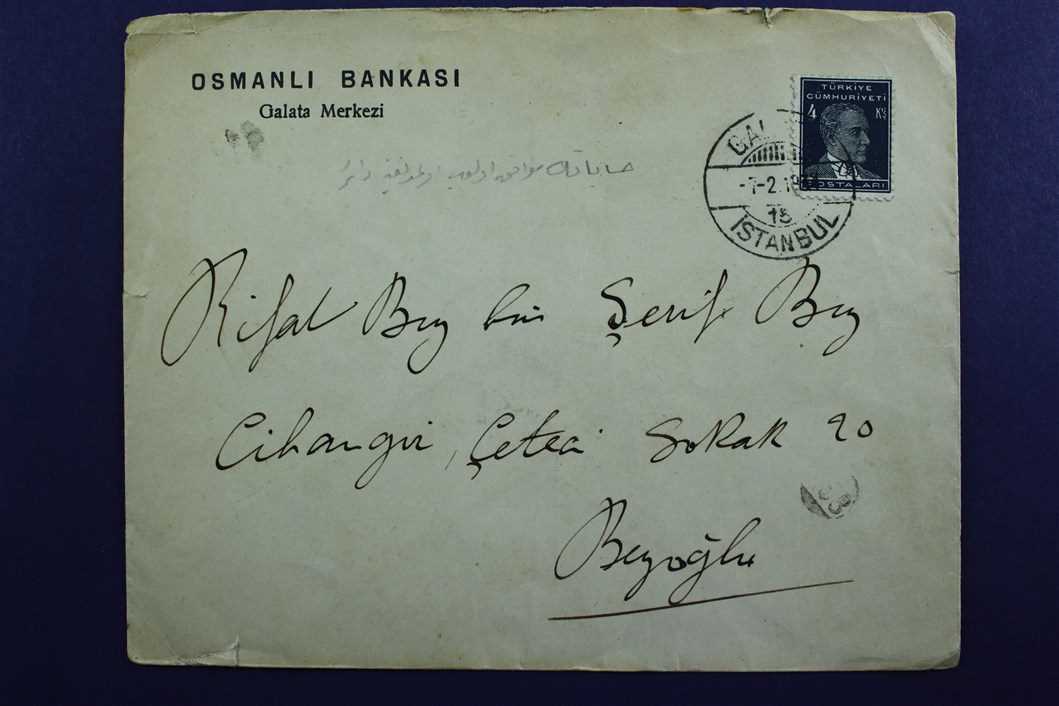 OSMANLI BANKASI
Galata Merkezi
TÜRKİYE
CÜMHURİYETİ
4 Kş
POSTALARI
-7-2.19
18
İSTANBUL
Rifat Bey bin Şerif Bey
Cihangir, Çeteci Sokak 20
Beyoğlu